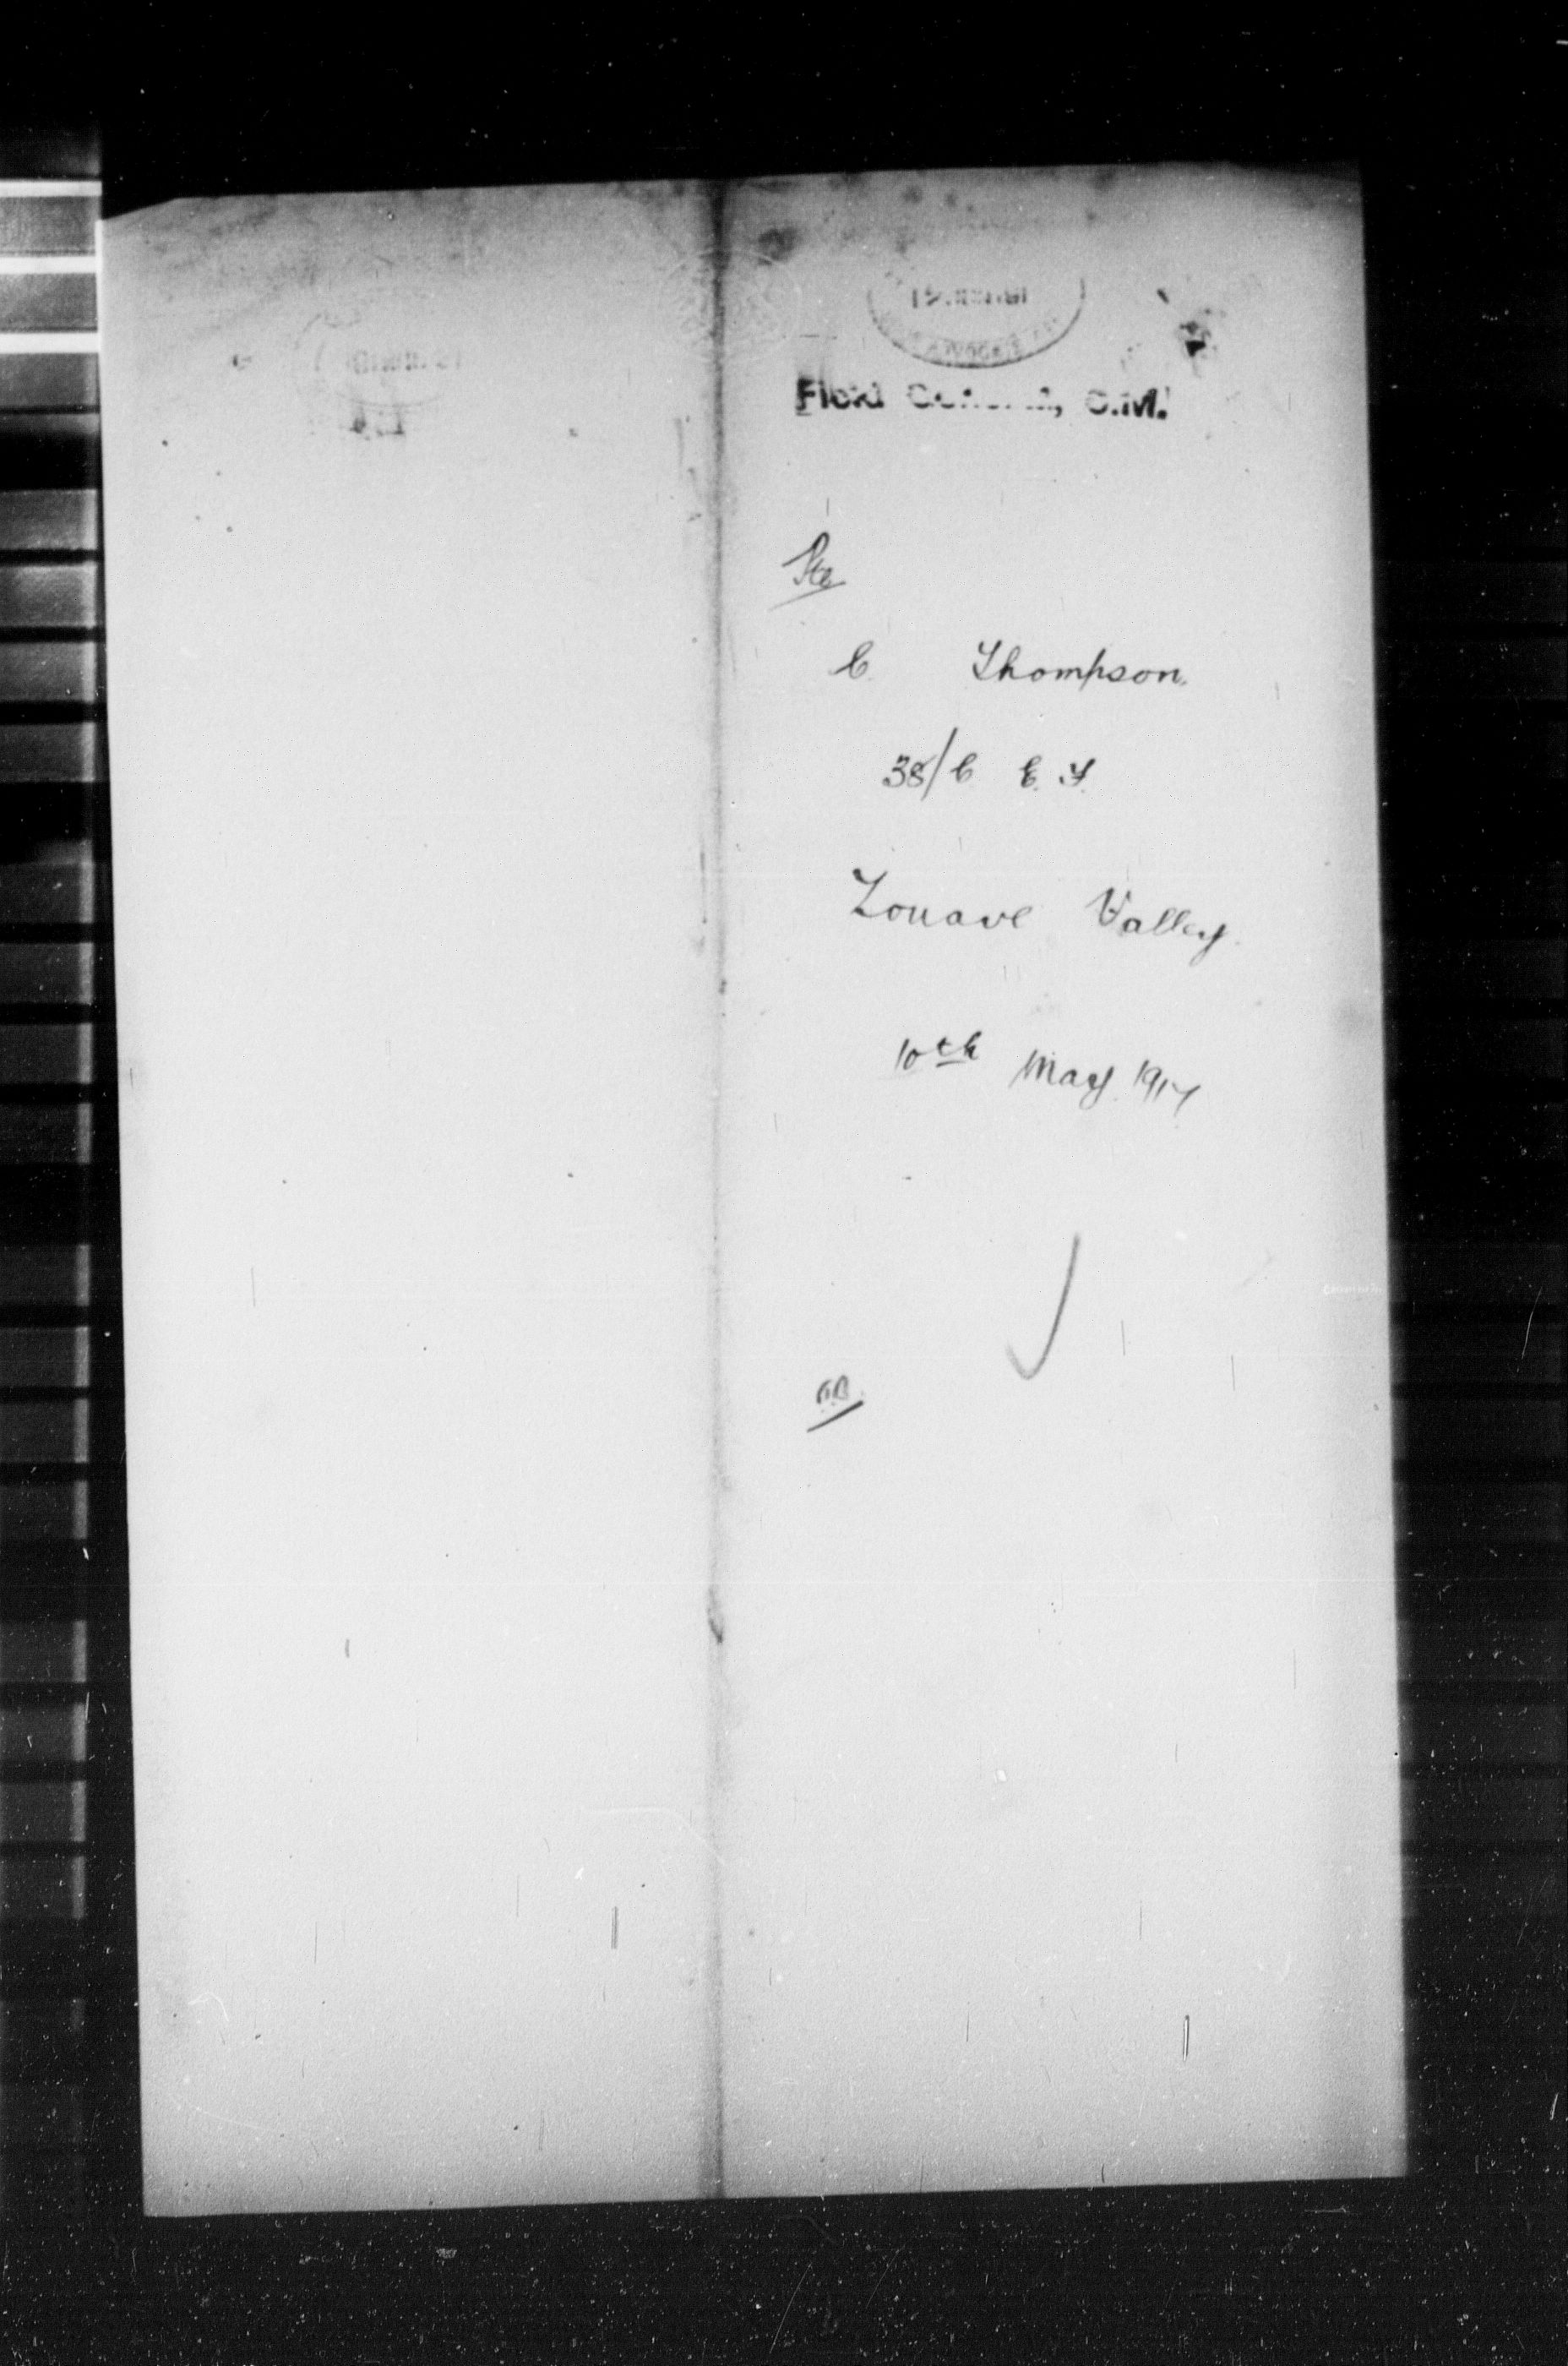 Field General, C.M.
Pte
C. Thompson.
38/C. E. F.
Zouave Valley.
10th May 1917